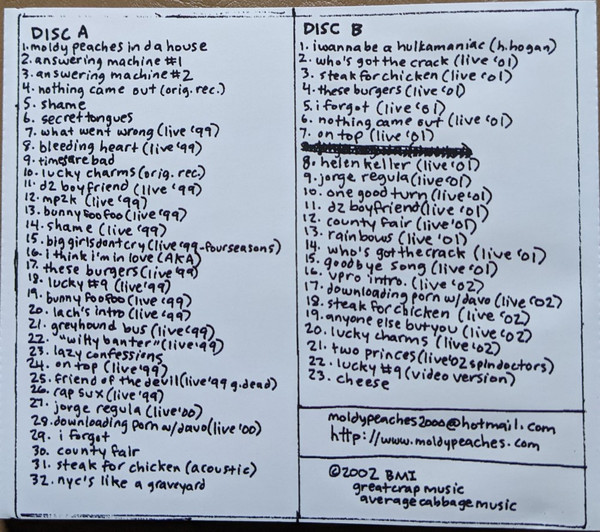 DISC A
1. moldy peaches in da house
2. answering machine #1
3. answering machine #2
4. nothing came out (orig. rec.)
5. shame
6. secret tongues
7. what went wrong (live '99)
8. bleeding heart (live '99)
9. times are bad
10. lucky charms (orig. rec.)
11. d2 boyfriend (live '99)
12. mp2k (live '99)
13. bunny foo foo (live '99)
14. shame (live '99)
15. big girls don't cry (live '99-four seasons)
16. i think i'm in love (AKA)
17. these burgers (live '99)
18. lucky #9 (live '99)
19. bunny foo foo (live '99)
20. lach's intro (live '99)
21. greyhound bus (live '99)
22. "wilky banter" (live '99)
23. lazy confessions
24. on top (live '99)
25. friend of the devil (live '99 g.dead)
26. rap sux (live '99)
27. jorge regula (live '00)
28. downloading porn w/ davo (live '00)
29. i forgot
30. county fair
31. steak for chicken (acoustic)
32. nyc's like a graveyard
DISC B
1. i wanna be a hulkamaniac (h. hogan)
2. who's got the crack (live '01)
3. steak for chicken (live '01)
4. these burgers (live '01)
5. i forgot (live '01)
6. nothing came out (live '01)
7. on top (live '01)
8. helen keller (live '01)
9. jorge regula (live '01)
10. one good turn (live '01)
11. d2 boyfriend (live '01)
12. county fair (live '01)
13. rainbows (live '01)
14. who's got the crack (live '01)
15. goodbye song (live '01)
16. vpro intro. (live '02)
17. downloading porn w/ davo (live '02)
18. steak for chicken (live '02)
19. anyone else but you (live '02)
20. lucky charms (live '02)
21. two princes (live '02 spin doctors)
22. lucky #9 (video version)
23. cheese
moldypeaches2000@hotmail.com
http://www.moldypeaches.com
©2002 BMI
great crap music
average cabbage music